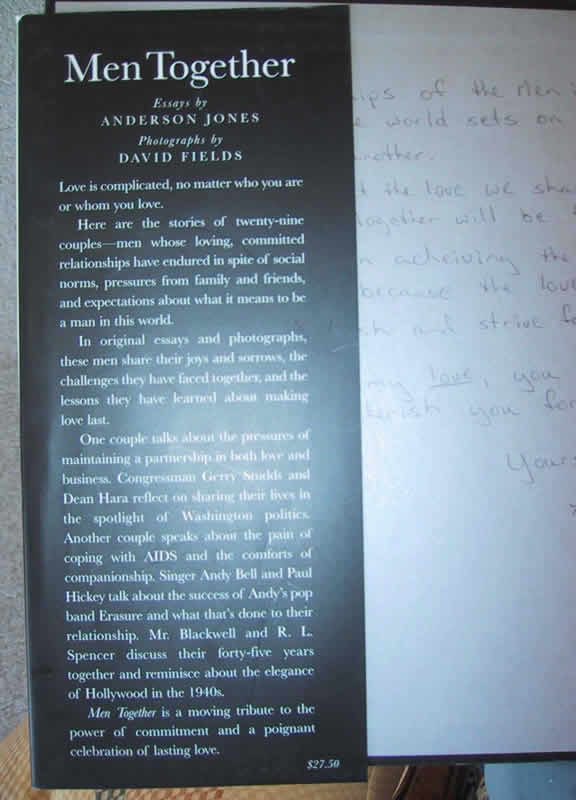 Men Together
Essays by
ANDERSON JONES
Photographs by
DAVID FIELDS
Love is complicated, no matter who you are
or whom you love.
Here are the stories of twenty-nine
couples—men whose loving, committed
relationships have endured in spite of social
norms, pressures from family and friends,
and expectations about what it means to be
a man in this world.
In original essays and photographs,
these men share their joys and sorrows, the
challenges they have faced together, and the
lessons they have learned about making
love last.
One couple talks about the pressures of
maintaining a partnership in both love and
business. Congressman Gerry Studds and
Dean Hara reflect on sharing their lives in
the spotlight of Washington politics.
Another couple speaks about the pain of
coping with AIDS and the comforts of
companionship. Singer Andy Bell and Paul
Hickey talk about the success of Andy's pop
band Erasure and what that's done to their
relationship. Mr. Blackwell and R. L.
Spencer discuss their forty-five years
together and reminisce about the elegance
of Hollywood in the 1940s.
Men Together is a moving tribute to the
power of commitment and a poignant
celebration of lasting love.
$27.50
of the Men
world sets on
the love we
together will be
acheiving the
because the
and strive
my love, you
you
Yours